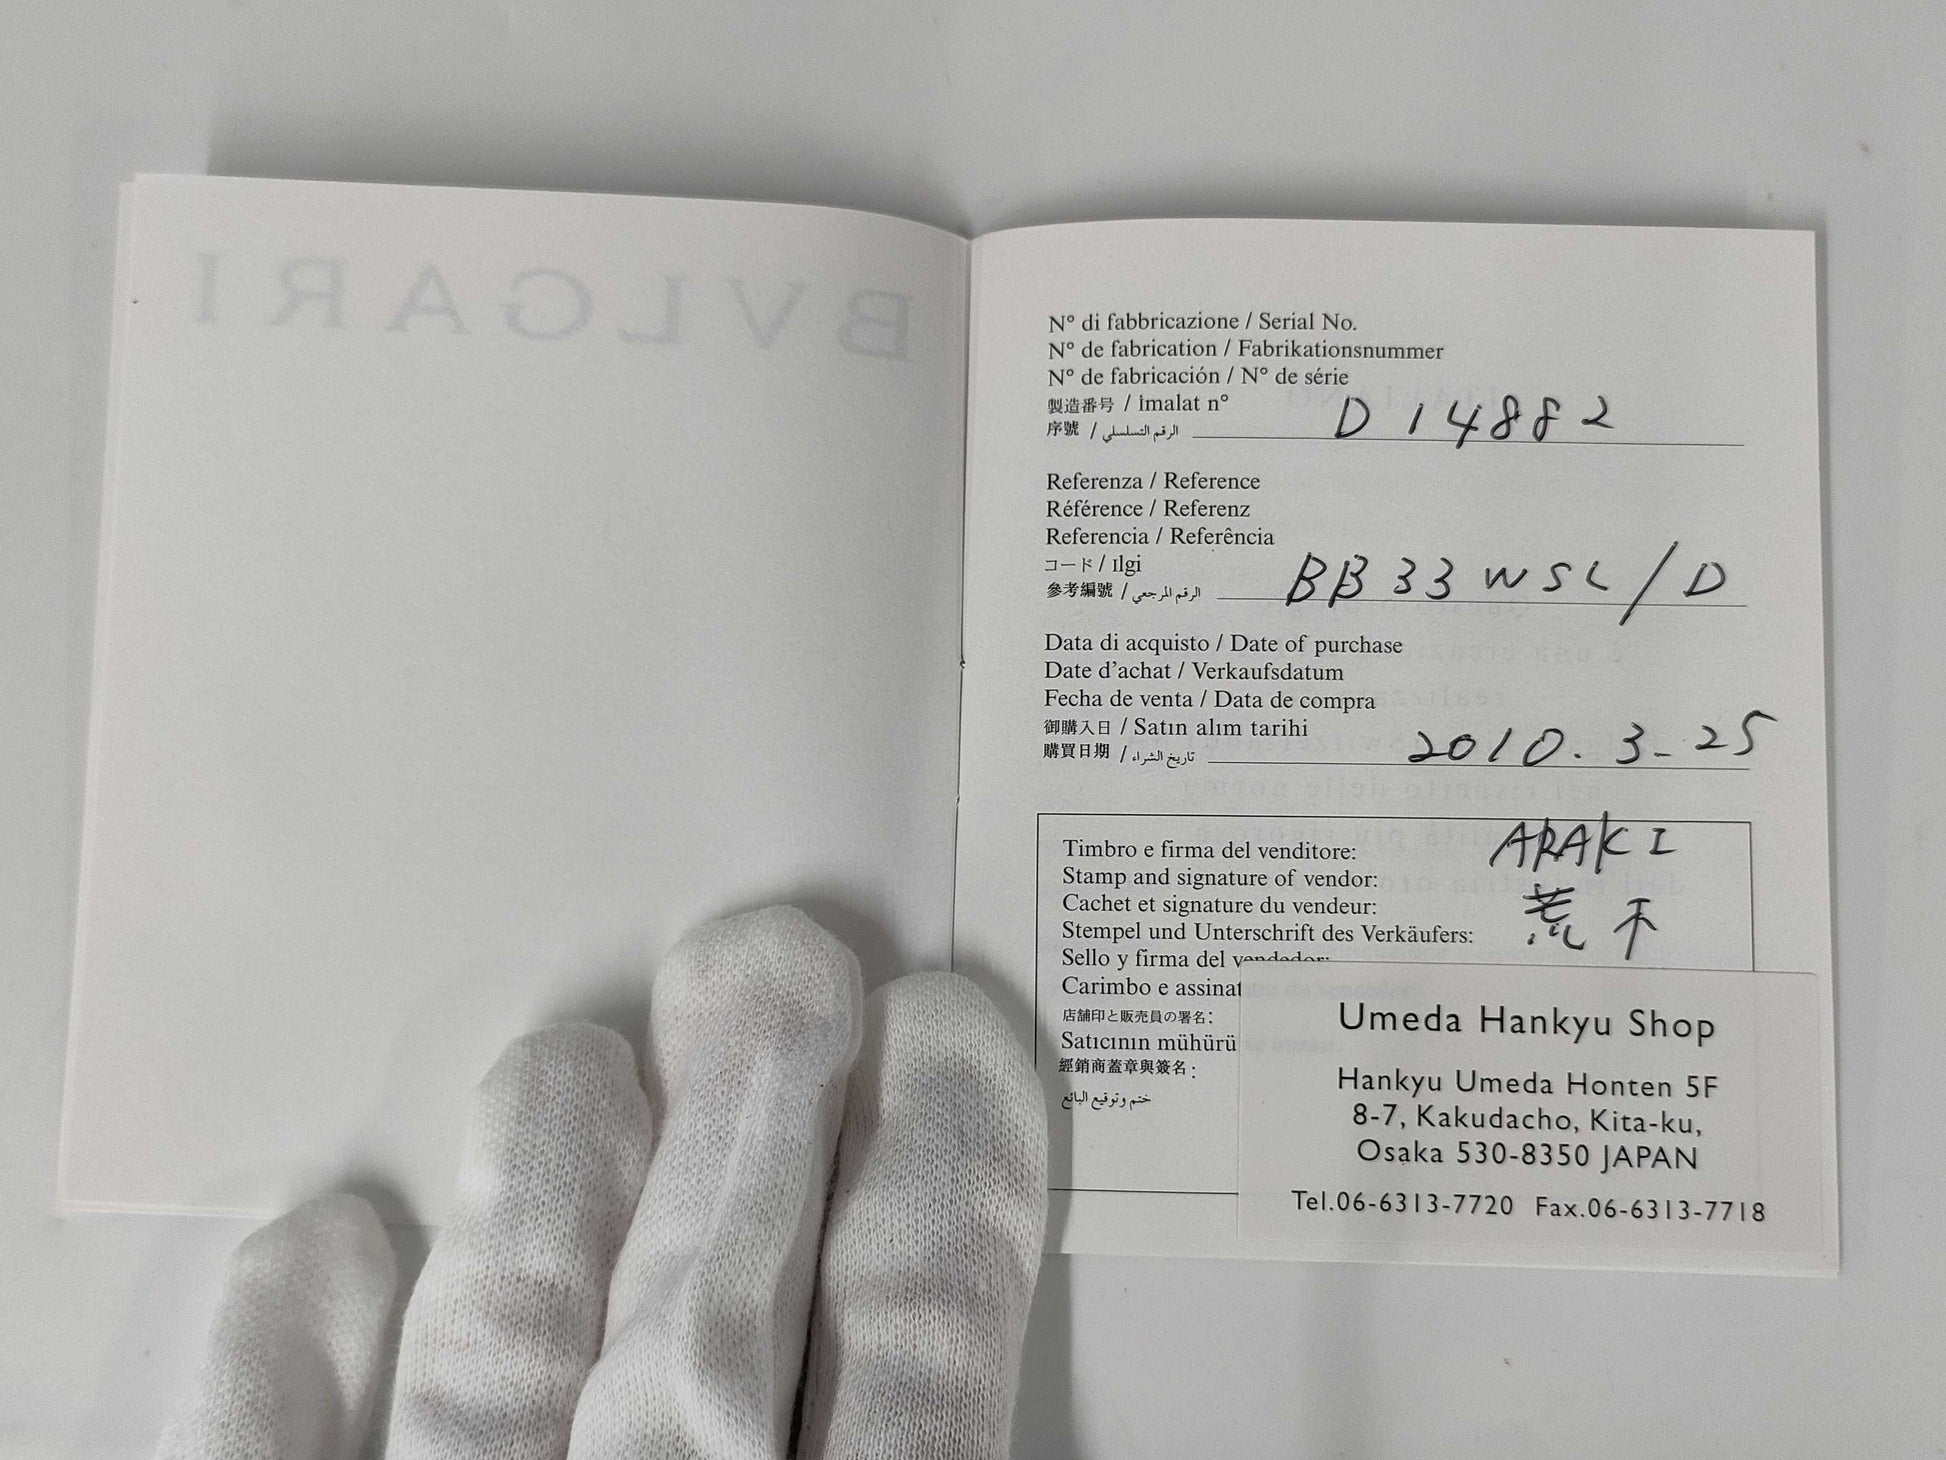 BVLGARI
N° di fabbricazione / Serial No.
N° de fabrication / Fabrikationsnummer
N° de fabricación / N° de série
製造番号 / imalat n°
序號 / الرقم التسلسلي D14882
Referenza / Reference
Référence / Referenz
Referencia / Referência
コード / Ilgi
參考編號 / الرقم المرجعي BB33WSL/D
Data di acquisto / Date of purchase
Date d'achat / Verkaufsdatum
Fecha de venta / Data de compra
御購入日 / Satın alım tarihi
購買日期 / تاريخ الشراء 2010.3-25
Timbro e firma del venditore: ARAKI
Stamp and signature of vendor:
Cachet et signature du vendeur: 荒木
Stempel und Unterschrift des Verkäufers:
Sello y firma del vendedor:
Carimbo e assinat
店舗印と販売員の署名:
Satıcının mühürü
經銷商蓋章與簽名:
ختم وتوقيع البائع
Umeda Hankyu Shop
Hankyu Umeda Honten 5F
8-7, Kakudacho, Kita-ku,
Osaka 530-8350 JAPAN
Tel.06-6313-7720 Fax.06-6313-7718